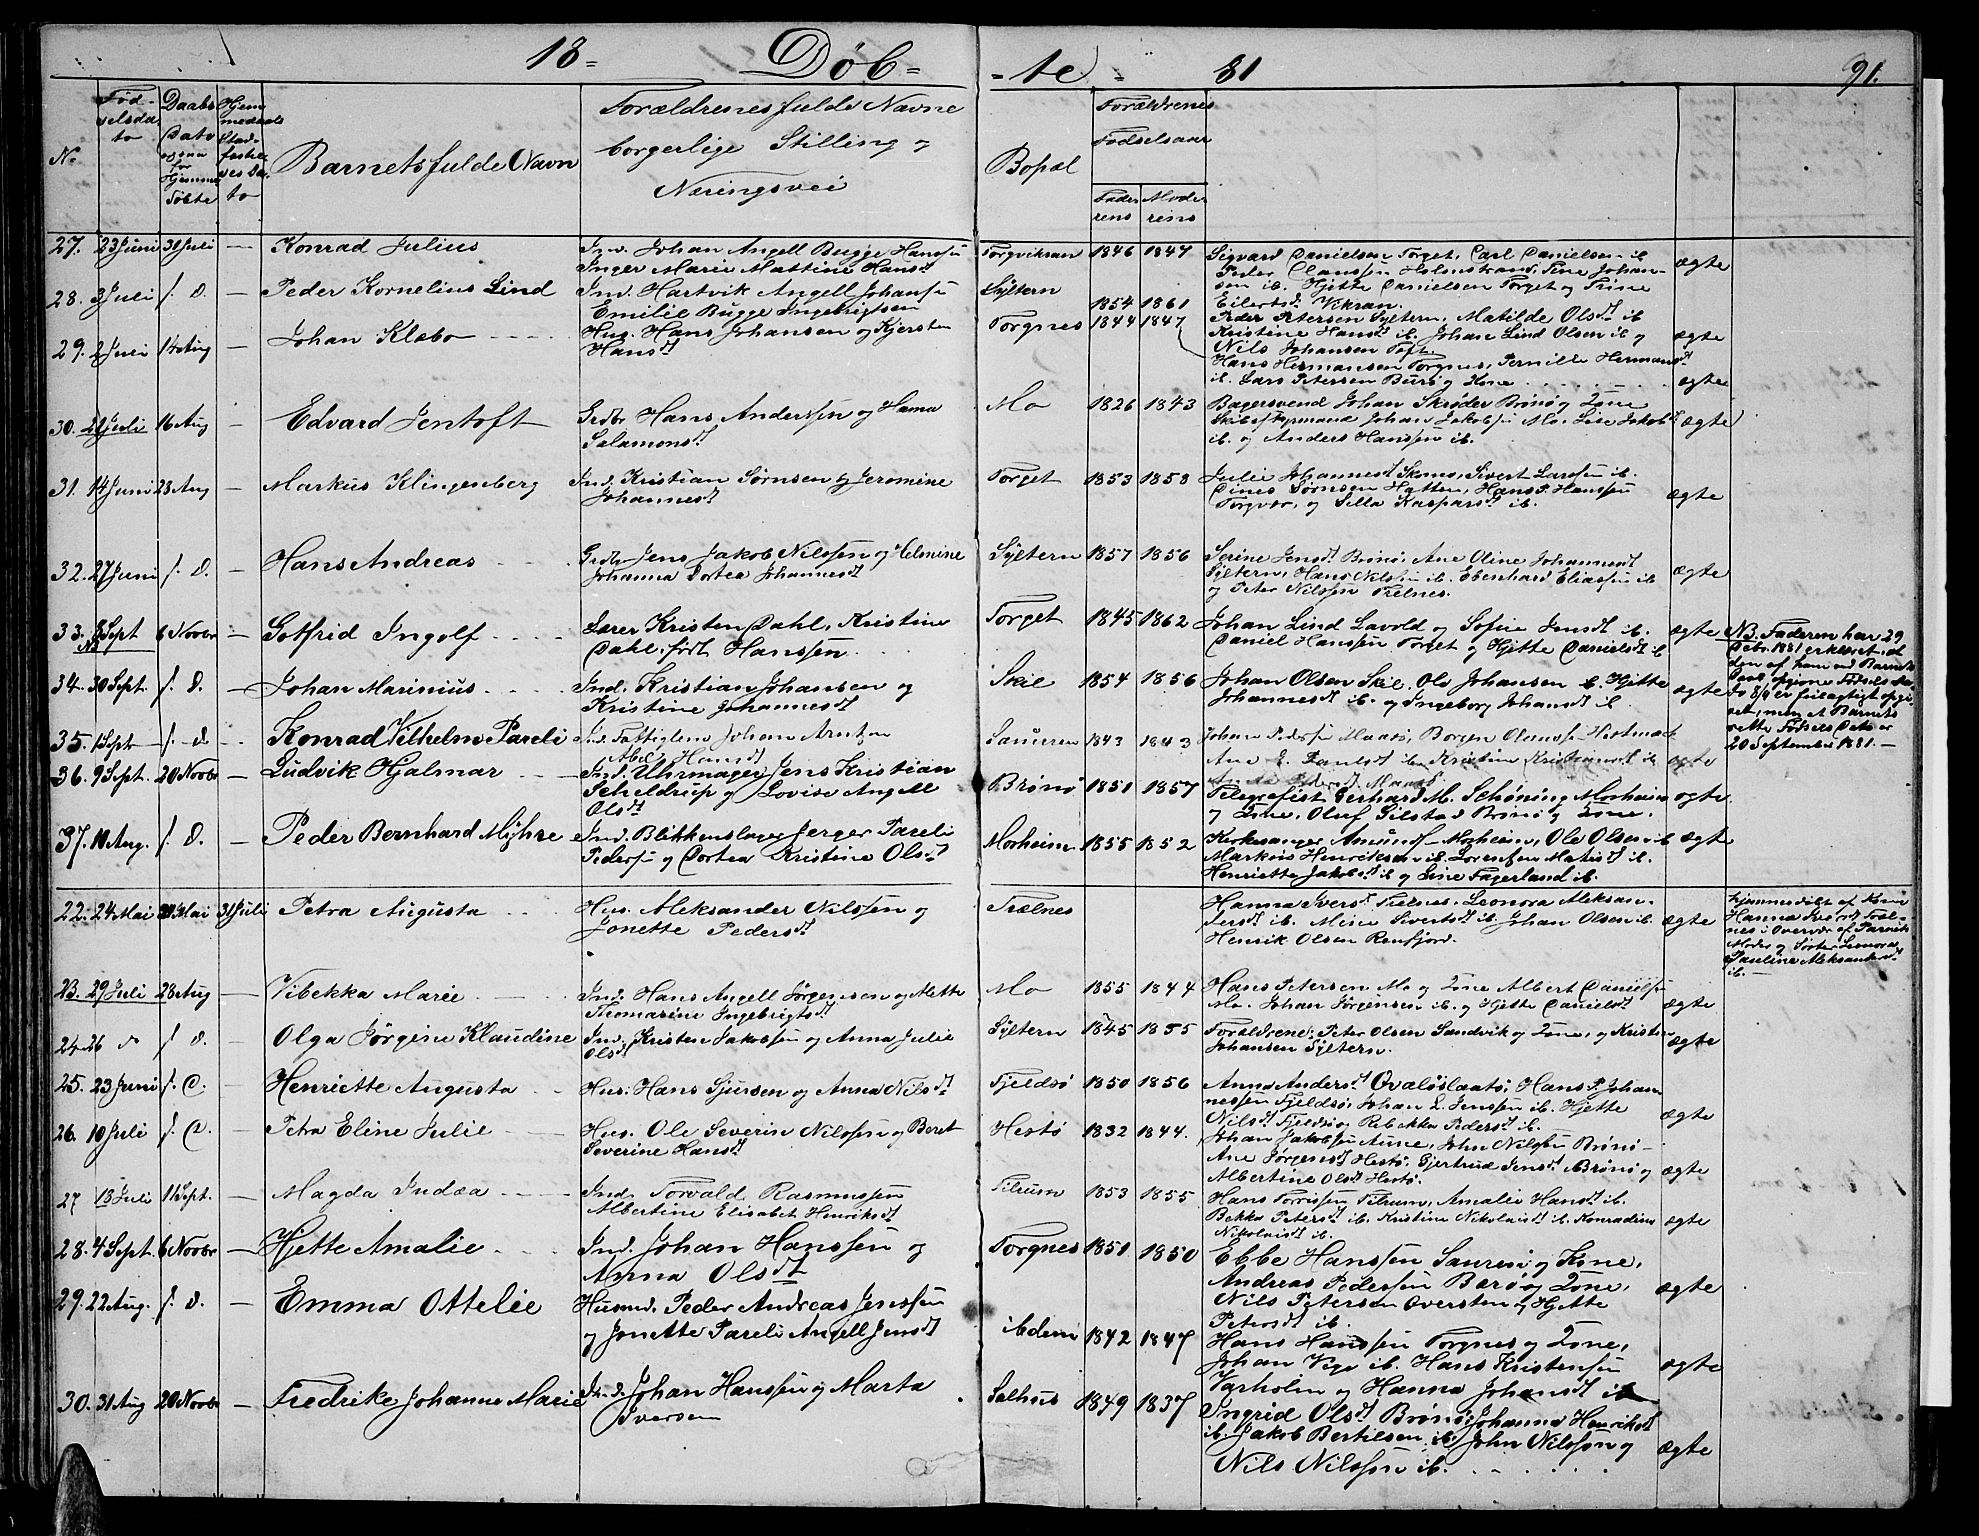 18 - Døb - - te - 81 91.
No
Fød-
selsda-
to
Daabs
Dato
Hjemme
døbte
Hjem
medaabs
Stad-
festel
ses Da-
to
Barnets fulde Navn
Forældrenes fulde Navne
borgerlige Stilling og
Næringsvei
Bopæl
Forældrenes
Fødselsaar
Fade-
rens
Mode-
rens
27. 23 Juni 31 Juli — Konrad Julius
Ind. Johan Angell Bugge Hanssen
Inger Marie Mattine Hansdt
Torgvikran 1846 1847
Sigvard Danielsen Torget, Carl Danielsen ib.
Peder Clausen Holmstrand, Tine Johan-
sen ib. Hjette Danielsen Torget og Trine
Eilertsdt Vikran.
ægte
28. 3 Juli f. D. — Peder Kornelius Lind
Ind. Hartvik Angell Johansen
Emilie Bugge Ingebrigtsen
Syltern 1854 1861
Peder Petersen Syltern, Matilde Olsdt ib
Kristine Hansdt ib. Johan Lind Olsen ib og
Nils Johansen Toft.
ægte
29. 2 Juli 14 Aug — Johan Klæbo - - - -
Hus. Hans Johansen og Kjersten
Hansdt
Torgnes 1844 1847
Hans Hermansen Torgnes, Pernille Hermansdt
ib. Lars Petersen Burø og Kone
ægte
30. 21 Juli 16 Aug — Edvard Jentoft
Grdbr Hans Anderssen og Hanna
Salamonsdt
Mo 1826 1843
Bagersvend Johan Skrøder Brønø og Kone
Skibsførmand Johan Jakobsen Mo. Lise Jakobsdt
ib. og Anders Hanssen ib.
ægte
31. 14 Juni 28 Aug — Markus Klingenberg
Ind. Kristian Sørnsen og Jeromine
Johannesdt
Torget 1853 1858
Julie Johannesdt Skones, Sivert Larssen ib.
Dines Sørnsen Hatten, Hans P. Hanssen
Torgvær, og Silla Kaspersdt ib.
ægte
32. 27 Juni f. D. — Hans Andreas
Grdbr Jens Jakob Nilssen og Helmine
Johanna Dortea Johannesdt
Syltern 1857 1856
Serine Jensdt Brønø, Ane Oline Johannesdt
Syltern, Hans Nilssen ib. Ebenhard Eliassen ib
og Peter Nilssen Trelnes.
ægte
33. 8 Sept 6 Novbr — Gotfrid Ingolf
NB
Lærer Kristen Dahl, Kristine
Dahl, født Hanssen
Torget 1845 1862
Johan Lind Lavold og Sofie Jensdt ib.
Daniel Hanssen Torget og Hjette Danielsdt ib
ægte
NB. Faderen har 29
Debr. 1881 erklæret, at
den af ham ved Barnets
Daab opgivne Fødsels Da-
to 8/9 er feilagtigt opgi-
vet, men at Barnets
rette Fødsels Dato er
20 September 1881. —
34. 30 Sept. f. D. — Johan Marinius
Ind. Kristian Johansen og
Kristine Johannesdt
Skil 1854 1856
Johan Olsen Skil. Ole Johansen ib. Hjette
Johannesdt ib. og Ingeborg Johansdt ib
ægte
35. 1 Sept f. d — Konrad Vilhelm Pareli
Ind. Fattiglem Johan Arntzen
Abel Hansdt
Sauren 1843 1843
Johan Pedersen Maasø, Borgen Olaussen Hestmark
Ane E. Paulsdt ib. Kristine Kristiansdt ib
ægte
36. 9 Sept. 20 Novbr — Ludvik Hjalmar
Ind. Uhrmager Jens Kristian
Scheldrup og Lovise Angell
Olsdt
Brønø 1851 1857
Telegrafist Gerhard M. Schøning Morheim
og Kone, Oluf Gilstad Brønø og Kone.
ægte
37. 10 Aug. f. D. — Peder Bernhard Myhre
Ind. Blikkenslager Jerger Pareli
Pedersen og Dortea Kristine Olsdt
Morheim 1855 1852
Kirkesanger Amundsen Morheim, Ole Olsen ib
Markus Henriksen ib. Lorentse Matisdt ib.
Henriette Jakobsdt ib og Line Fagerland ib.
ægte
22. 24 Mai 31 Mai 31 Juli Petra Augusta
Hus. Aleksander Nilssen og
Jonette Pedersdt
Trælnes
Hanna Iversdt Trelnes. Leonora Aleksan-
dersdt ib. Mine Sivertsdt ib. Johan Olsen ib.
Henrik Olsen Renfjord.
ægte
Hjemmedøbt af Kone
Hanna Iversdt Træl-
nes i Overvær af Barnets
Moder og Søster Leonora
Pauline Aleksandersdt
ib. —
23. 29 Juli 28 Aug — Vibekka Marie
Ind. Hans Angell Jørgensen og Mette
Tomarine Ingebrigtsdt
Mo 1855 1844
Hans Petersen Mo og Kone Albert Danielsen
Mo. Johan Jørgensen ib. og Hjette Danielsdt
ægte
24. 26 do f. D. — Olga Jørgine Klaudine
Ind. Kristen Jakobsen og Anna Julie
Olsdt
Syltern 1845 1855
Forældrene; Peter Olsen Sandvik og Kone, og Kristen
Johansen Syltern.
ægte
25. 23 Juni f. D. — Henriette Augusta
Hus: Hans Sjursen og Anna Nilsdt
Fjeldsø 1850 1856
Anna Andersdt Hans P. Johan-
nessen Fjeldsø, Johan L. Jenssen ib. Hjette
Nilsdt Fjeldsø og Rebekka Pedersdt ib.
ægte
26. 10 Juli f. D. — Petra Eline Julie
Hus. Ole Severin Nilssen og Beret
Severine Hansdt
Hestø 1832 1844.
Johan Jakobsen Aune, John Nilssen Brønø-
Ane Jørgensdt Hestø, Gjertrud Jensdt Brønø og
Albertine Olsdt Hestø.
ægte
27 13 Juli 11 Sept. — Magda Indæa
Ind. Torvald Rasmussen
Albertine Elisabet Henriksdt
Tilrum 1853 1855
Hans Torrissen Tilrum, Amalie Hansdt ib.
Bekka Petersdt ib. Kristine Nikolaisdt ib. Konradine
Nikolaisdt ib.
ægte
28. 4 Sept. 6 Novbr — Hjette Amalie
Ind. Johan Hanssen og
Anna Olsdt
Torgnes 1851 1850
Ebbe Hanssen Saurø og Kone,
Andreas Pedersen Bærø og Kone,
Nils Petersen Oversten og Hjette
Petersdt ib.
ægte
29. 22 Aug. f. d. — Emma Ottelie
Husmd. Peder Andreas Jenssen
og Jonette Pareli Angell Jensdt
ibdem 1842 1847
Hans Hanssen Torgnes og Kone,
Johan Vige ib. Hans Kristensen
Varholm og Hanna Johansdt ib
ægte
30. 31 Aug 20 Novbr — Fredrike Johanna Marie
Ind. Johan Hanssen og Marta
Iversen
Salhus 1849 1837
Ingrid Olsdt Brønø, Johanna Henriksdt
ib. Jakob Bertilsen ib. John Nilssen og
Nils Nilssen ib.
ægte